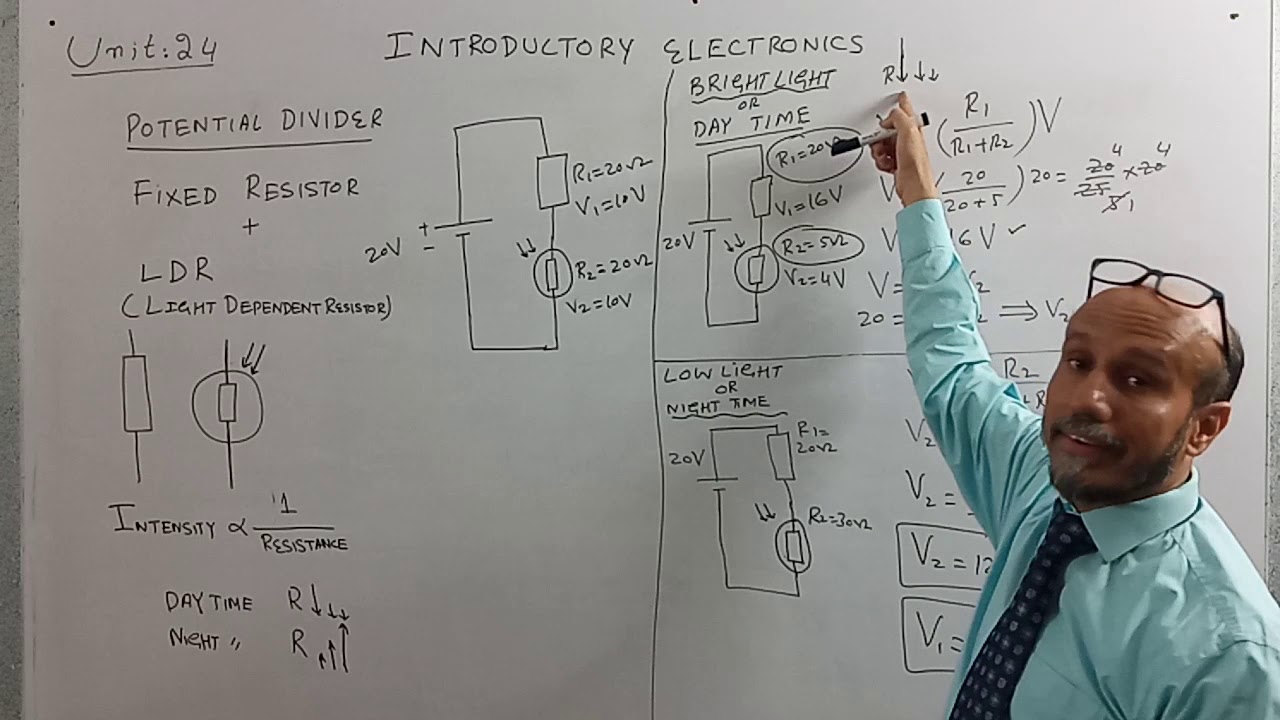 Unit:24
INTRODUCTORY ELECTRONICS
POTENTIAL DIVIDER
FIXED RESISTOR
+
LDR
(LIGHT DEPENDENT RESISTOR)
INTENSITY ∝ 1/RESISTANCE
DAY TIME R↓↓↓
NIGHT 〃 R↑↑↑
+
−
20V
R1=20Ω
V1=10V
R2=20Ω
V2=10V
BRIGHT LIGHT
OR
DAY TIME
R↓↓↓
R1=20Ω
V1=16V
20V
R2=5Ω
V2=4V
(R1/(R1+R2))V
V (20/(20+5))20 = 20/25 × 20
4 4
5 1
V 16V ✓
V= 2
20= 2 ⇒ V2
LOW LIGHT
OR
NIGHT TIME
20V
R1=
20Ω
R2=30Ω
R2
+R
V2
V2=
V2=12
V1=